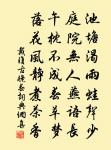 池塘渴雨蛙聲少
庭院無人燕語長
午枕不成春草夢
落花風靜煮茶香
戴復古懷泰詞典網喜